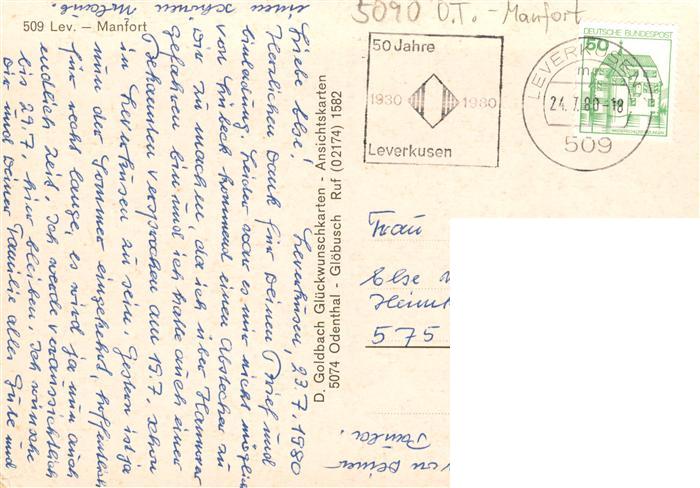 509 Lev. — Manfort
5090 O.T. - Manfort
DEUTSCHE BUNDESPOST
50
50 Jahre
1930 1980
Leverkusen
LEVERKUSEN
24.7.80-18
509
D. Goldbach Glückwunschkarten - Ansichtskarten
5074 Odenthal - Glöbusch Ruf (02174) 1582
Leverkusen, 23.7.1980
Liebe Else!
Herzlichen Dank für Deinen Brief und
Einladung. Leider war es mir nicht möglich
von Lübeck kommend einen Abstecher zu
Dir zu machen, da ich über Hannover
gefahren bin und ich hatte auch einer
Bekannten versprochen am 19.7. schon
in Leverkusen zu sein. Gestern ist ja
nun der Sommer eingekehrt, hoffentlich
für recht lange, es wird ja nun auch
endlich Zeit. Ich werde voraussichtlich
bis 29.7. hier bleiben. Ich wünsche
Dir und Deiner Familie alles Gute und
einen schönen
Urlaub.
von Deiner
Paula.
Frau
Else
575